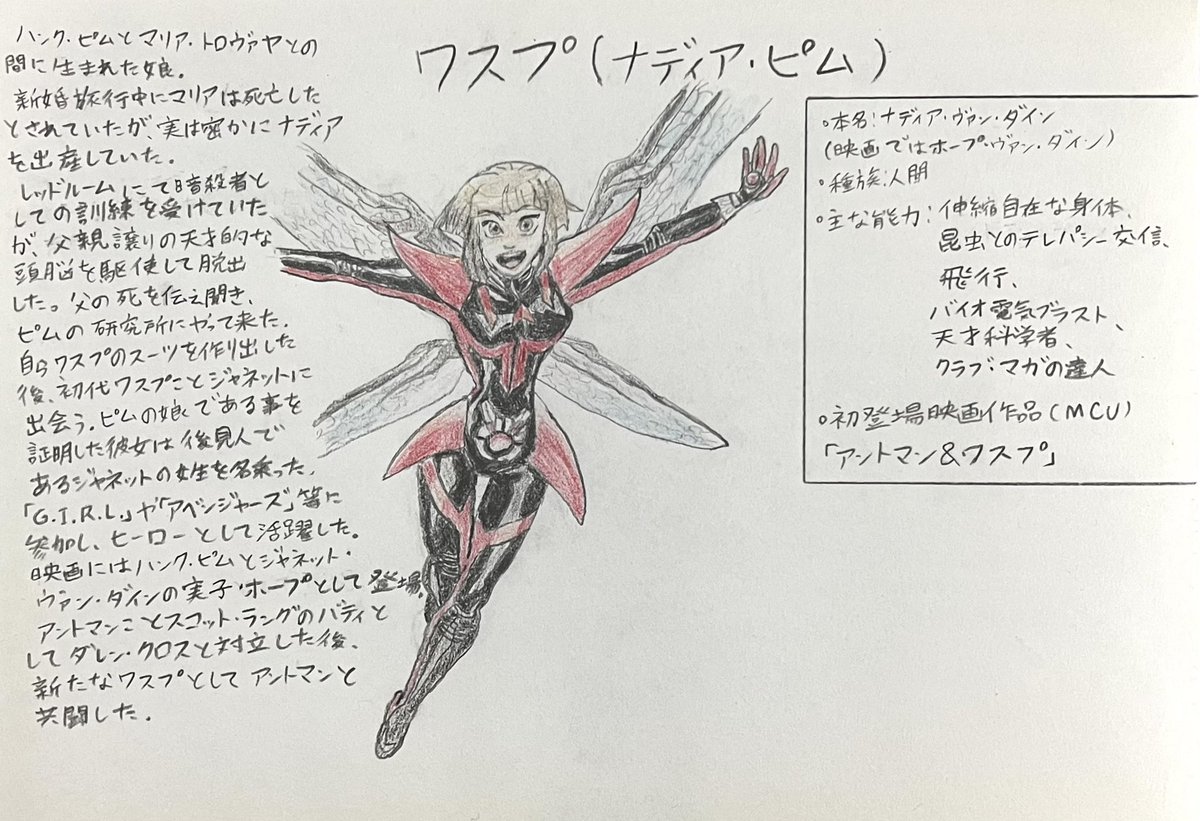 ワスプ(ナディア・ピム)
ハンク・ピムとマリア・トロヴァヤとの
間に生まれた娘.
新婚旅行中にマリアは死亡した
とされていたが、実は密かにナディア
を出産していた.
レッドルームにて暗殺者と
しての訓練を受けていた
が、父親譲りの天才的な
頭脳を駆使して脱出
した。父の死を伝え聞き、
ピムの研究所にやって来た.
自らワスプのスーツを作り出した
後、初代ワスプことジャネットに
出会う.ピムの娘である事を
証明した彼女は後見人で
あるジャネットの姓を名乗った.
「G.I.R.L.」や「アベンジャーズ」等に
参加し、ヒーローとして活躍した.
映画にはハンク・ピムとジャネット・
ヴァン・ダインの実子・ホープとして登場.
アントマンことスコット・ラングのバディと
してダレン・クロスと対立した後、
新たなワスプとしてアントマンと
共闘した.
・本名:ナディア・ヴァン・ダイン
(映画ではホープ・ヴァン・ダイン)
・種族:人間
・主な能力:伸縮自在な身体、
昆虫とのテレパシー交信、
飛行、
バイオ電気ブラスト、
天才科学者、
クラブ・マガの達人
・初登場映画作品(MCU)
「アントマン&ワスプ」